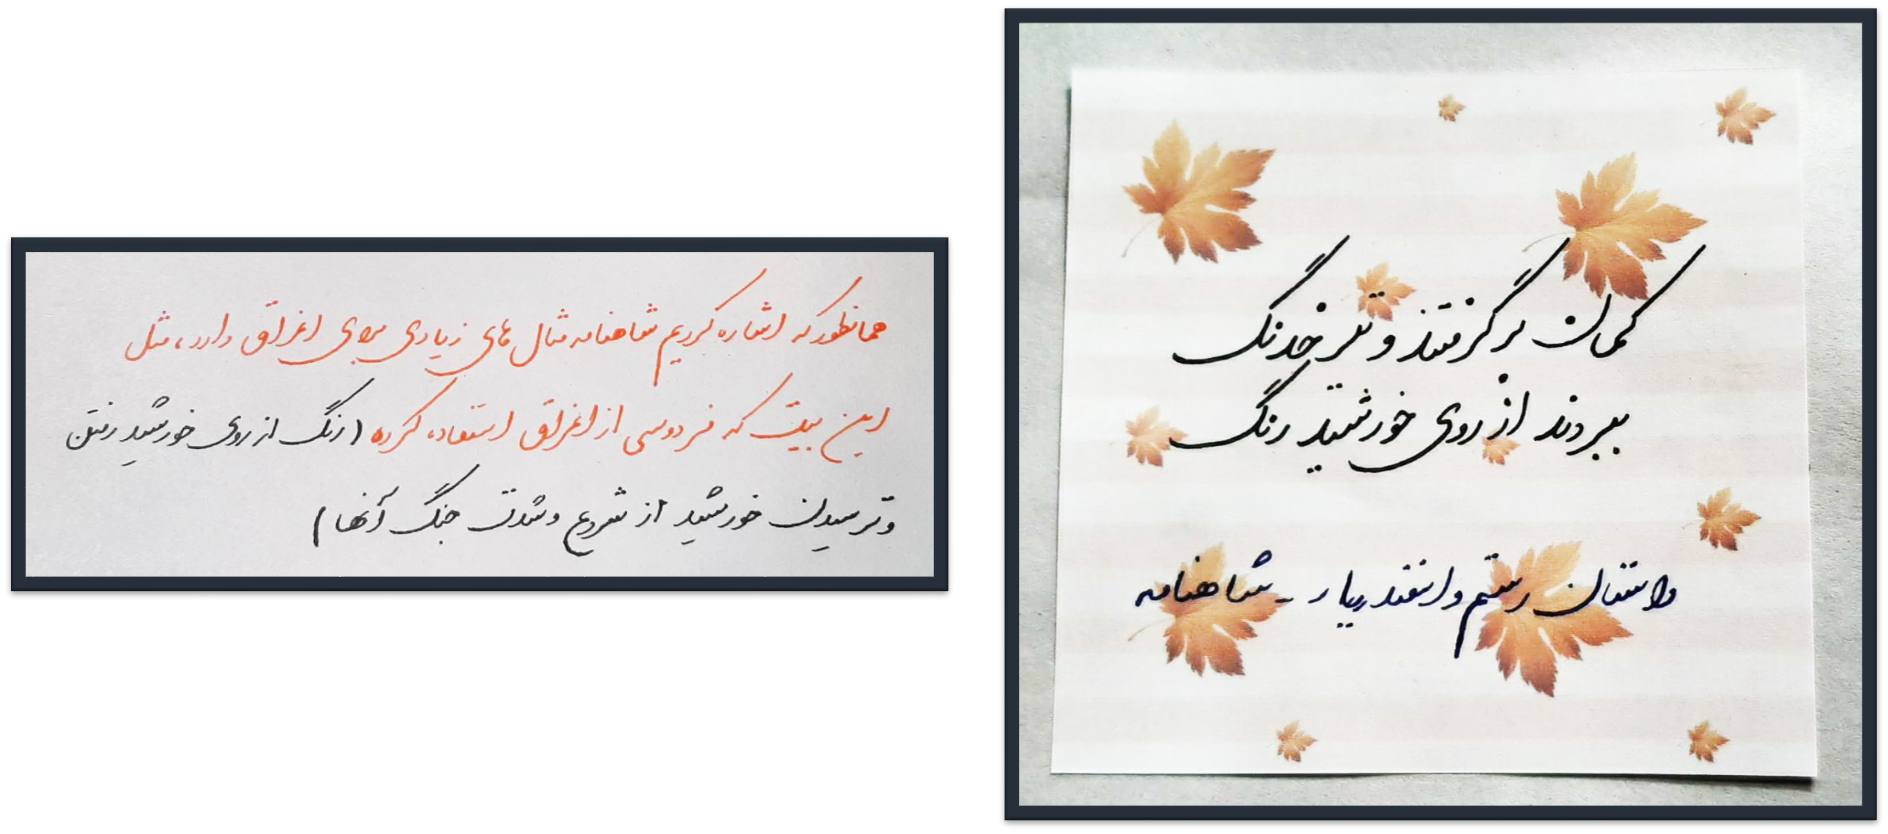 همانطور که اشاره کردیم شاهنامه مثال های زیادی برای اغراق دارد، مثل
این بیت که فردوسی از اغراق استفاده کرده (رنگ از روی خورشید رفتن
و ترسیدن خورشید از شروع و شدت جنگ آنها)
کمان برگرفتند و تیر خدنگ
ببردند از روی خورشید رنگ
داستان رستم و اسفندیار - شاهنامه